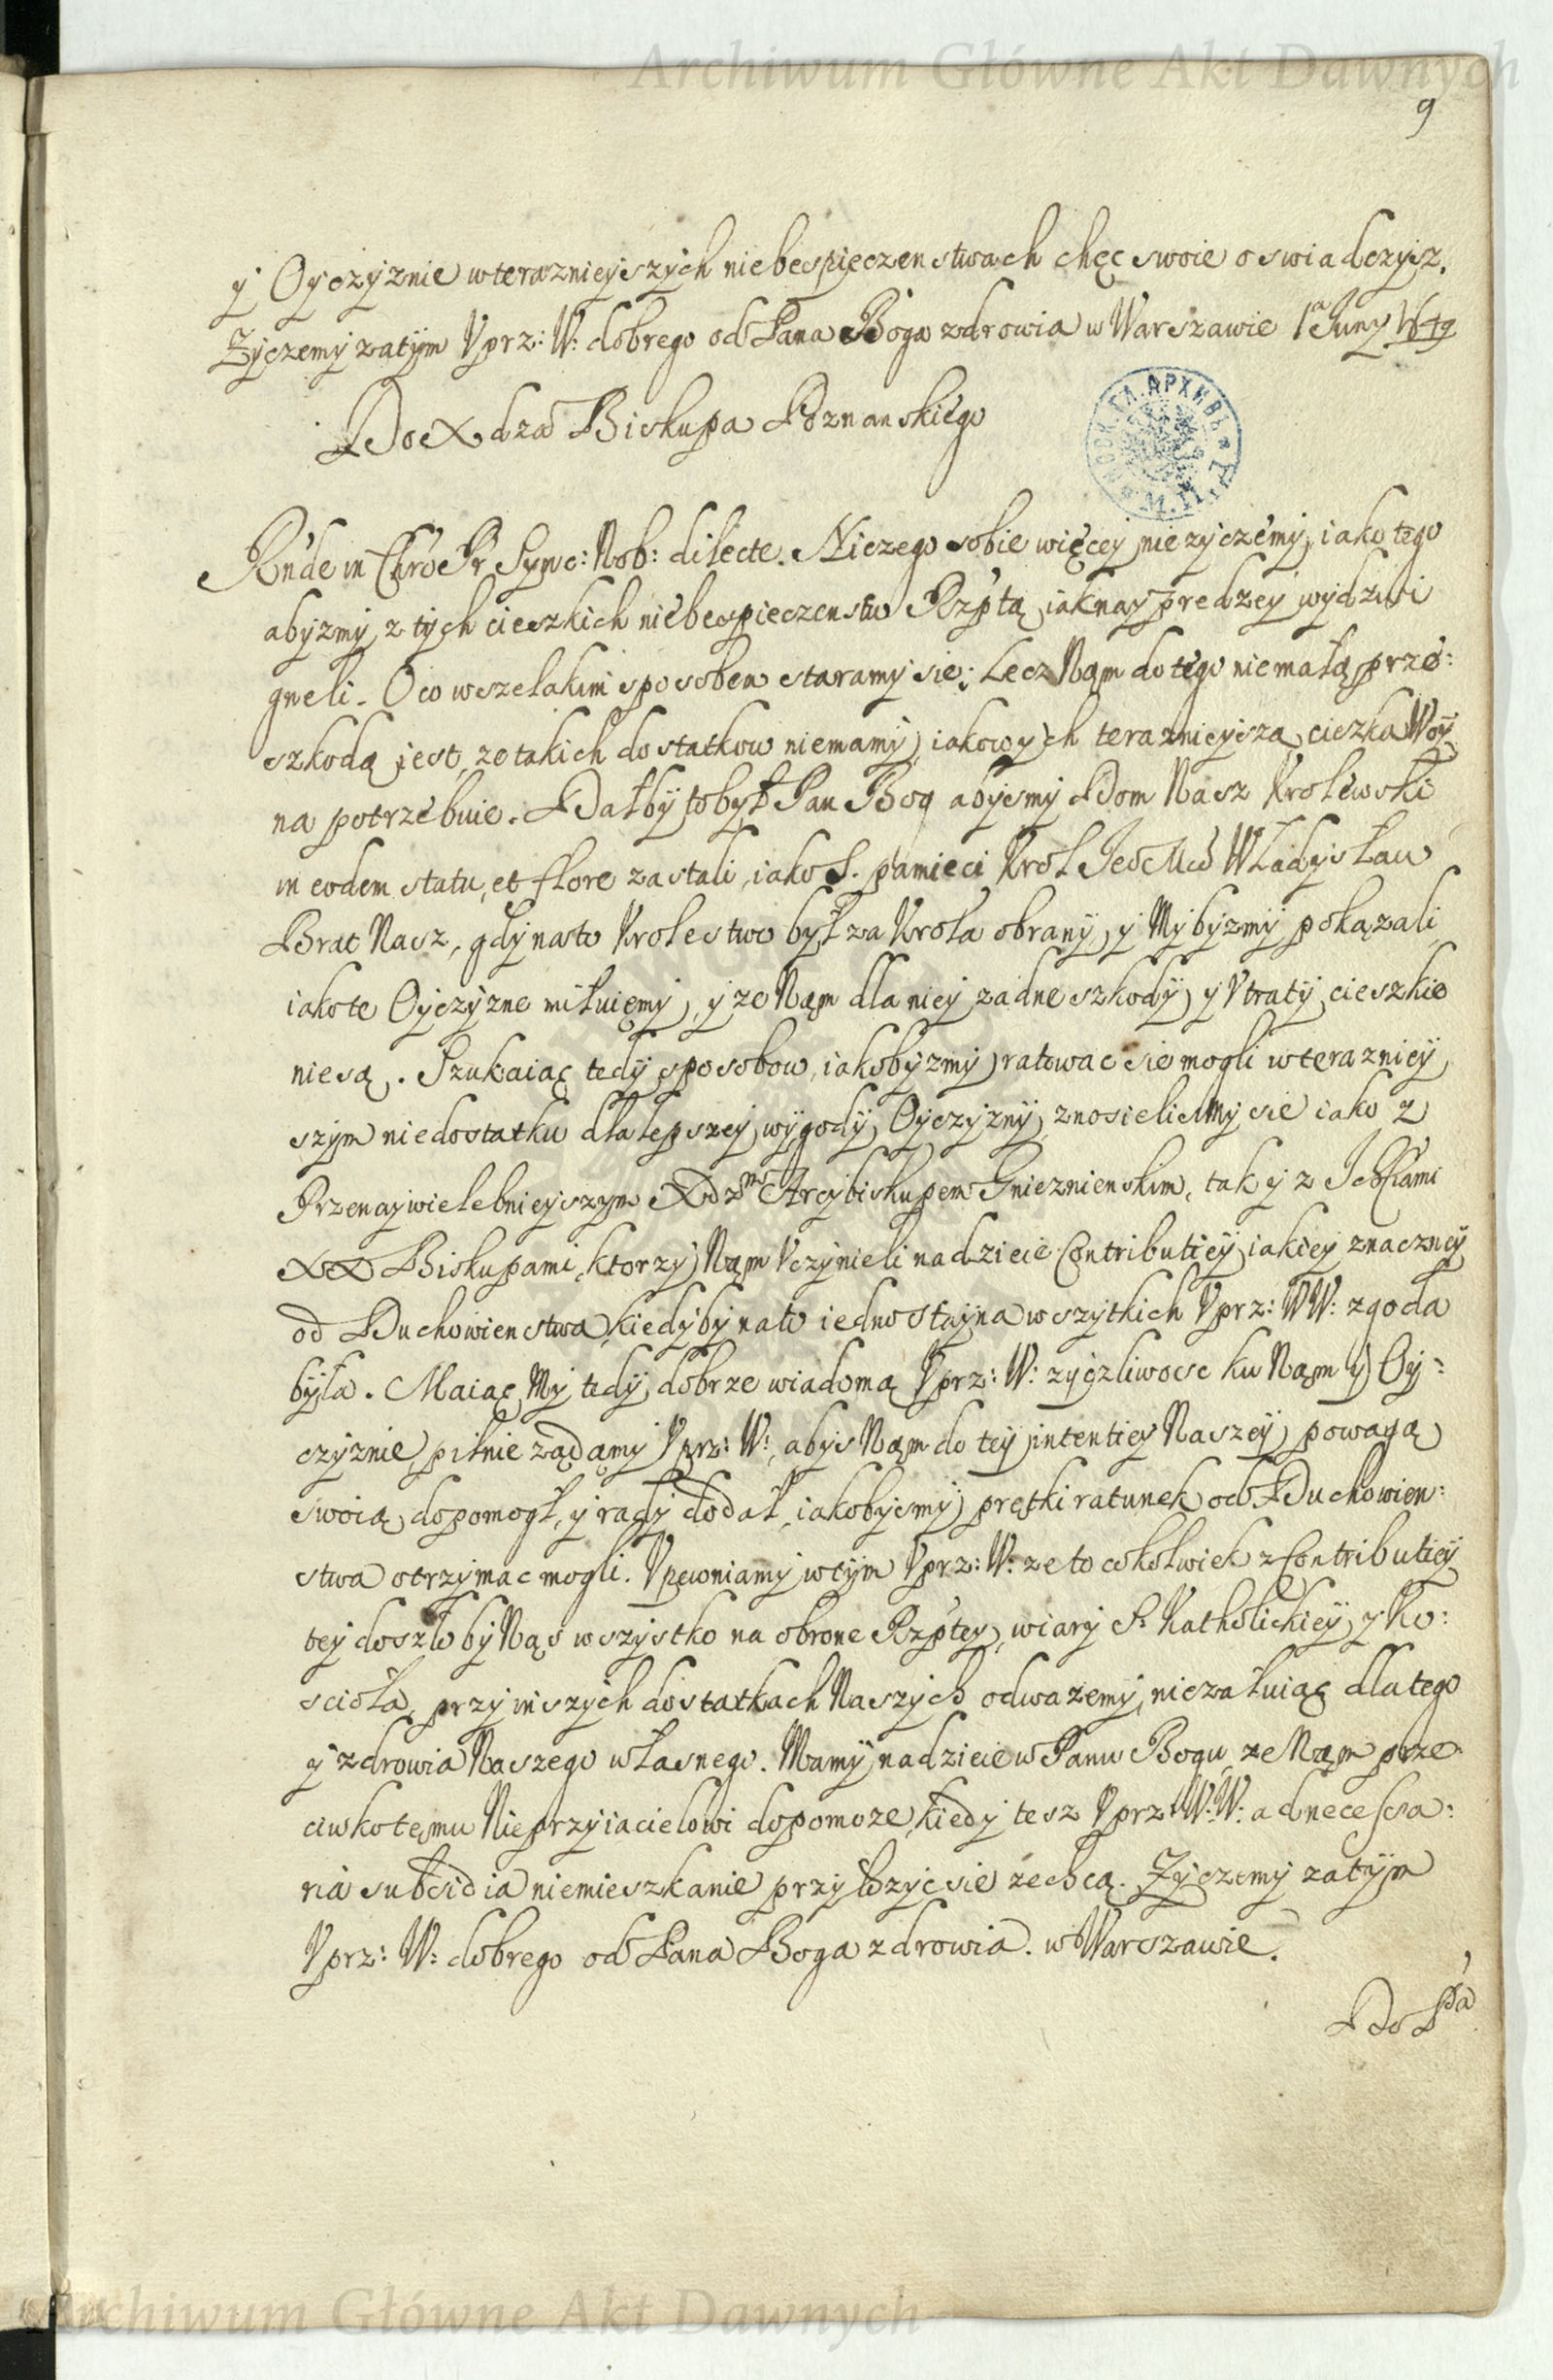 Archiwum Główne Akt Dawnych
9
y Oyczyznie w teraznieyszych niebespieczenstwach chęc swoie oswiadczysz.
Zyczemy zatym Vprz: W: dobrego od Pana Boga zdrowia w Warszawie 1a Juny 1649
Do Xdza Biskupa Poznanskiego
Rnde in Chro Pr Sync: Nob: dilecte. Niczego sobie więcey nie zyczemy, iako tego
abyzmy z tych cieszkich niebespieczenstw Rzptą iak naypredzey wydzwi
gneli. O co wszelakim sposobem staramy sie; Lecz Nąm do tego niemałą prze:
szkodą jest, ze takich dostatkow niemamy, iakowych teraznieysza cieszka Woy
na potrzebuie. Dałby to był Pan Bog abysmy Dom Nasz Krolewski
in eodem statu, et flore zastali, iako S. pamieci Krol Jeo Mcs Władysław
Brat Nasz, gdy na to Krolestwo był za Krola obrany, y My byzmy pokązali
iako te Oyczyzne miłuięmy, y ze Nąm dla niey zadne szkody y Vtraty cieszkie
niesą. Szukaiąc tedy sposobow, iakobyzmy ratowac sie mogli w terazniey
szym niedostatku dla lepszey wygody Oyczyzny, znosielismy sie iako z
Przenaywielebnieyszym Xdzm Arcybiskupem Gnieznienskim, tak y z Ich Mciami
XX Biskupami, ktorzy Nąm Vczynieli nadzieie Contributiey iakiey znaczney
od Duchowienstwa, kiedyby na to iednostayna wszytkich Vprz: WW: zgoda
była. Maiąc My tedy dobrze wiadomą Vprz: W: zyczliwosc ku Nąm y Oy:
czyznie, pilnie ządąmy Vprz: W:, abys Nąm do tey intentiey Naszey powagą
swoią dopomogł, y rady dodał, iakobysmy prętki ratunek od Duchowien:
stwa otrzymac mogli. Vpewniamy w tym Vprz: W: ze to cokolwiek z Contributiey
tey doszło by Nąs wszystko na obrone Rzptey, wiary S. Katholickiey y Ko:
scioła, przy inszych dostatkach Naszych odwazemy, niezałuiąc dla tego
y zdrowia Naszego własnego. Mamy nadzieie w Panu Bogu ze Nąm prze
ciwko temu Nieprzyiacielowi dopomoze, kiedy tesz Vprz: W:W: ad necessa:
ria subsidia niemieszkanie przyłozyc sie zechcą. Zyczemy zatym
Vprz: W: dobrego od Pana Boga zdrowia. w Warszawie.
Do Pa
Archiwum Główne Akt Dawnych